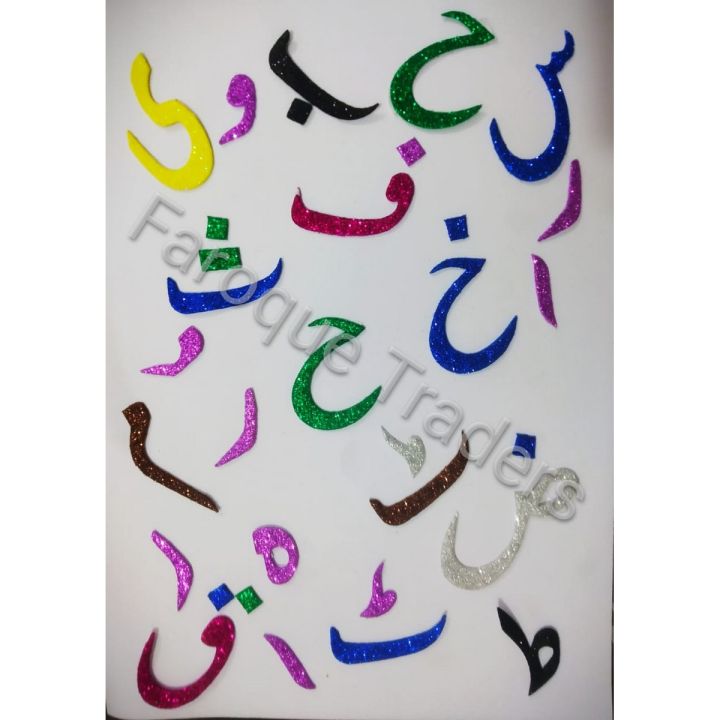 س ح ب و ی
ر ف
ا خ ث
ح د
ض ٹ ر م
ہ ر
ط ٹ ا ق
Faroque Traders